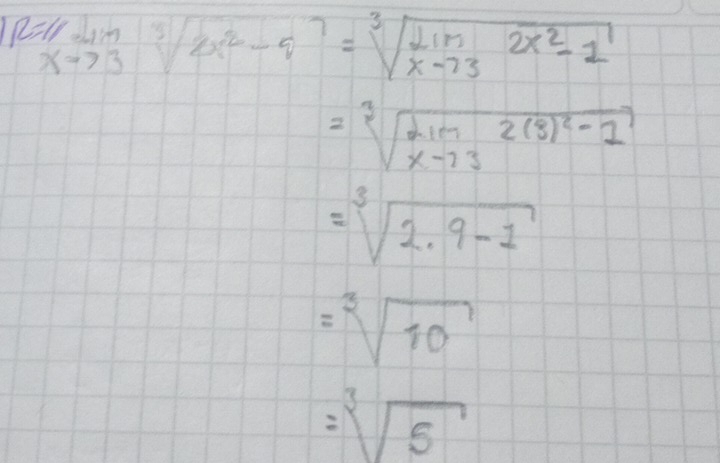 R=// Lim x→3 ∛2x² - 9 = ∛Lim x→3 2x² - 1
= ∛Lim x→3 2(3)² - 1
= ∛2.9-1
= ∛10
= ∛5